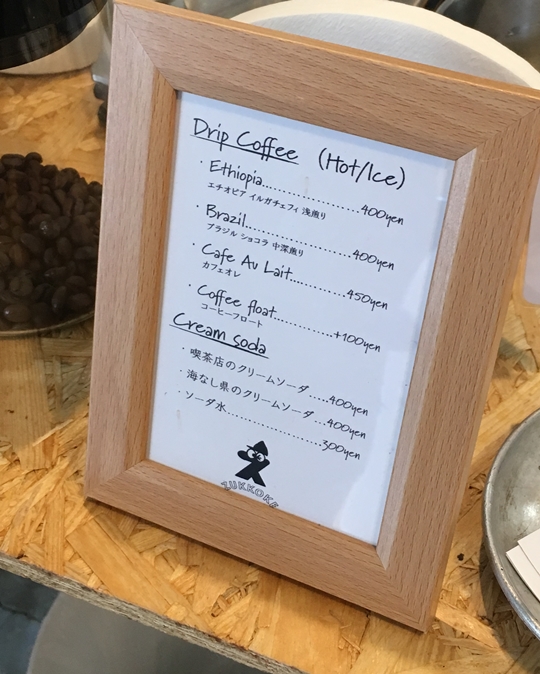 Drip Coffee (Hot/Ice)
・Ethiopia..................400yen
エチオピア イルガチェフィ 浅煎り
・Brazil..................400yen
ブラジル ショコラ 中深煎り
・Cafe Au Lait..........450yen
カフェオレ
・Coffee float............+100yen
コーヒーフロート
Cream soda
・喫茶店のクリームソーダ.....400yen
・海なし県のクリームソーダ...400yen
・ソーダ水....................300yen
ZUKKOKE